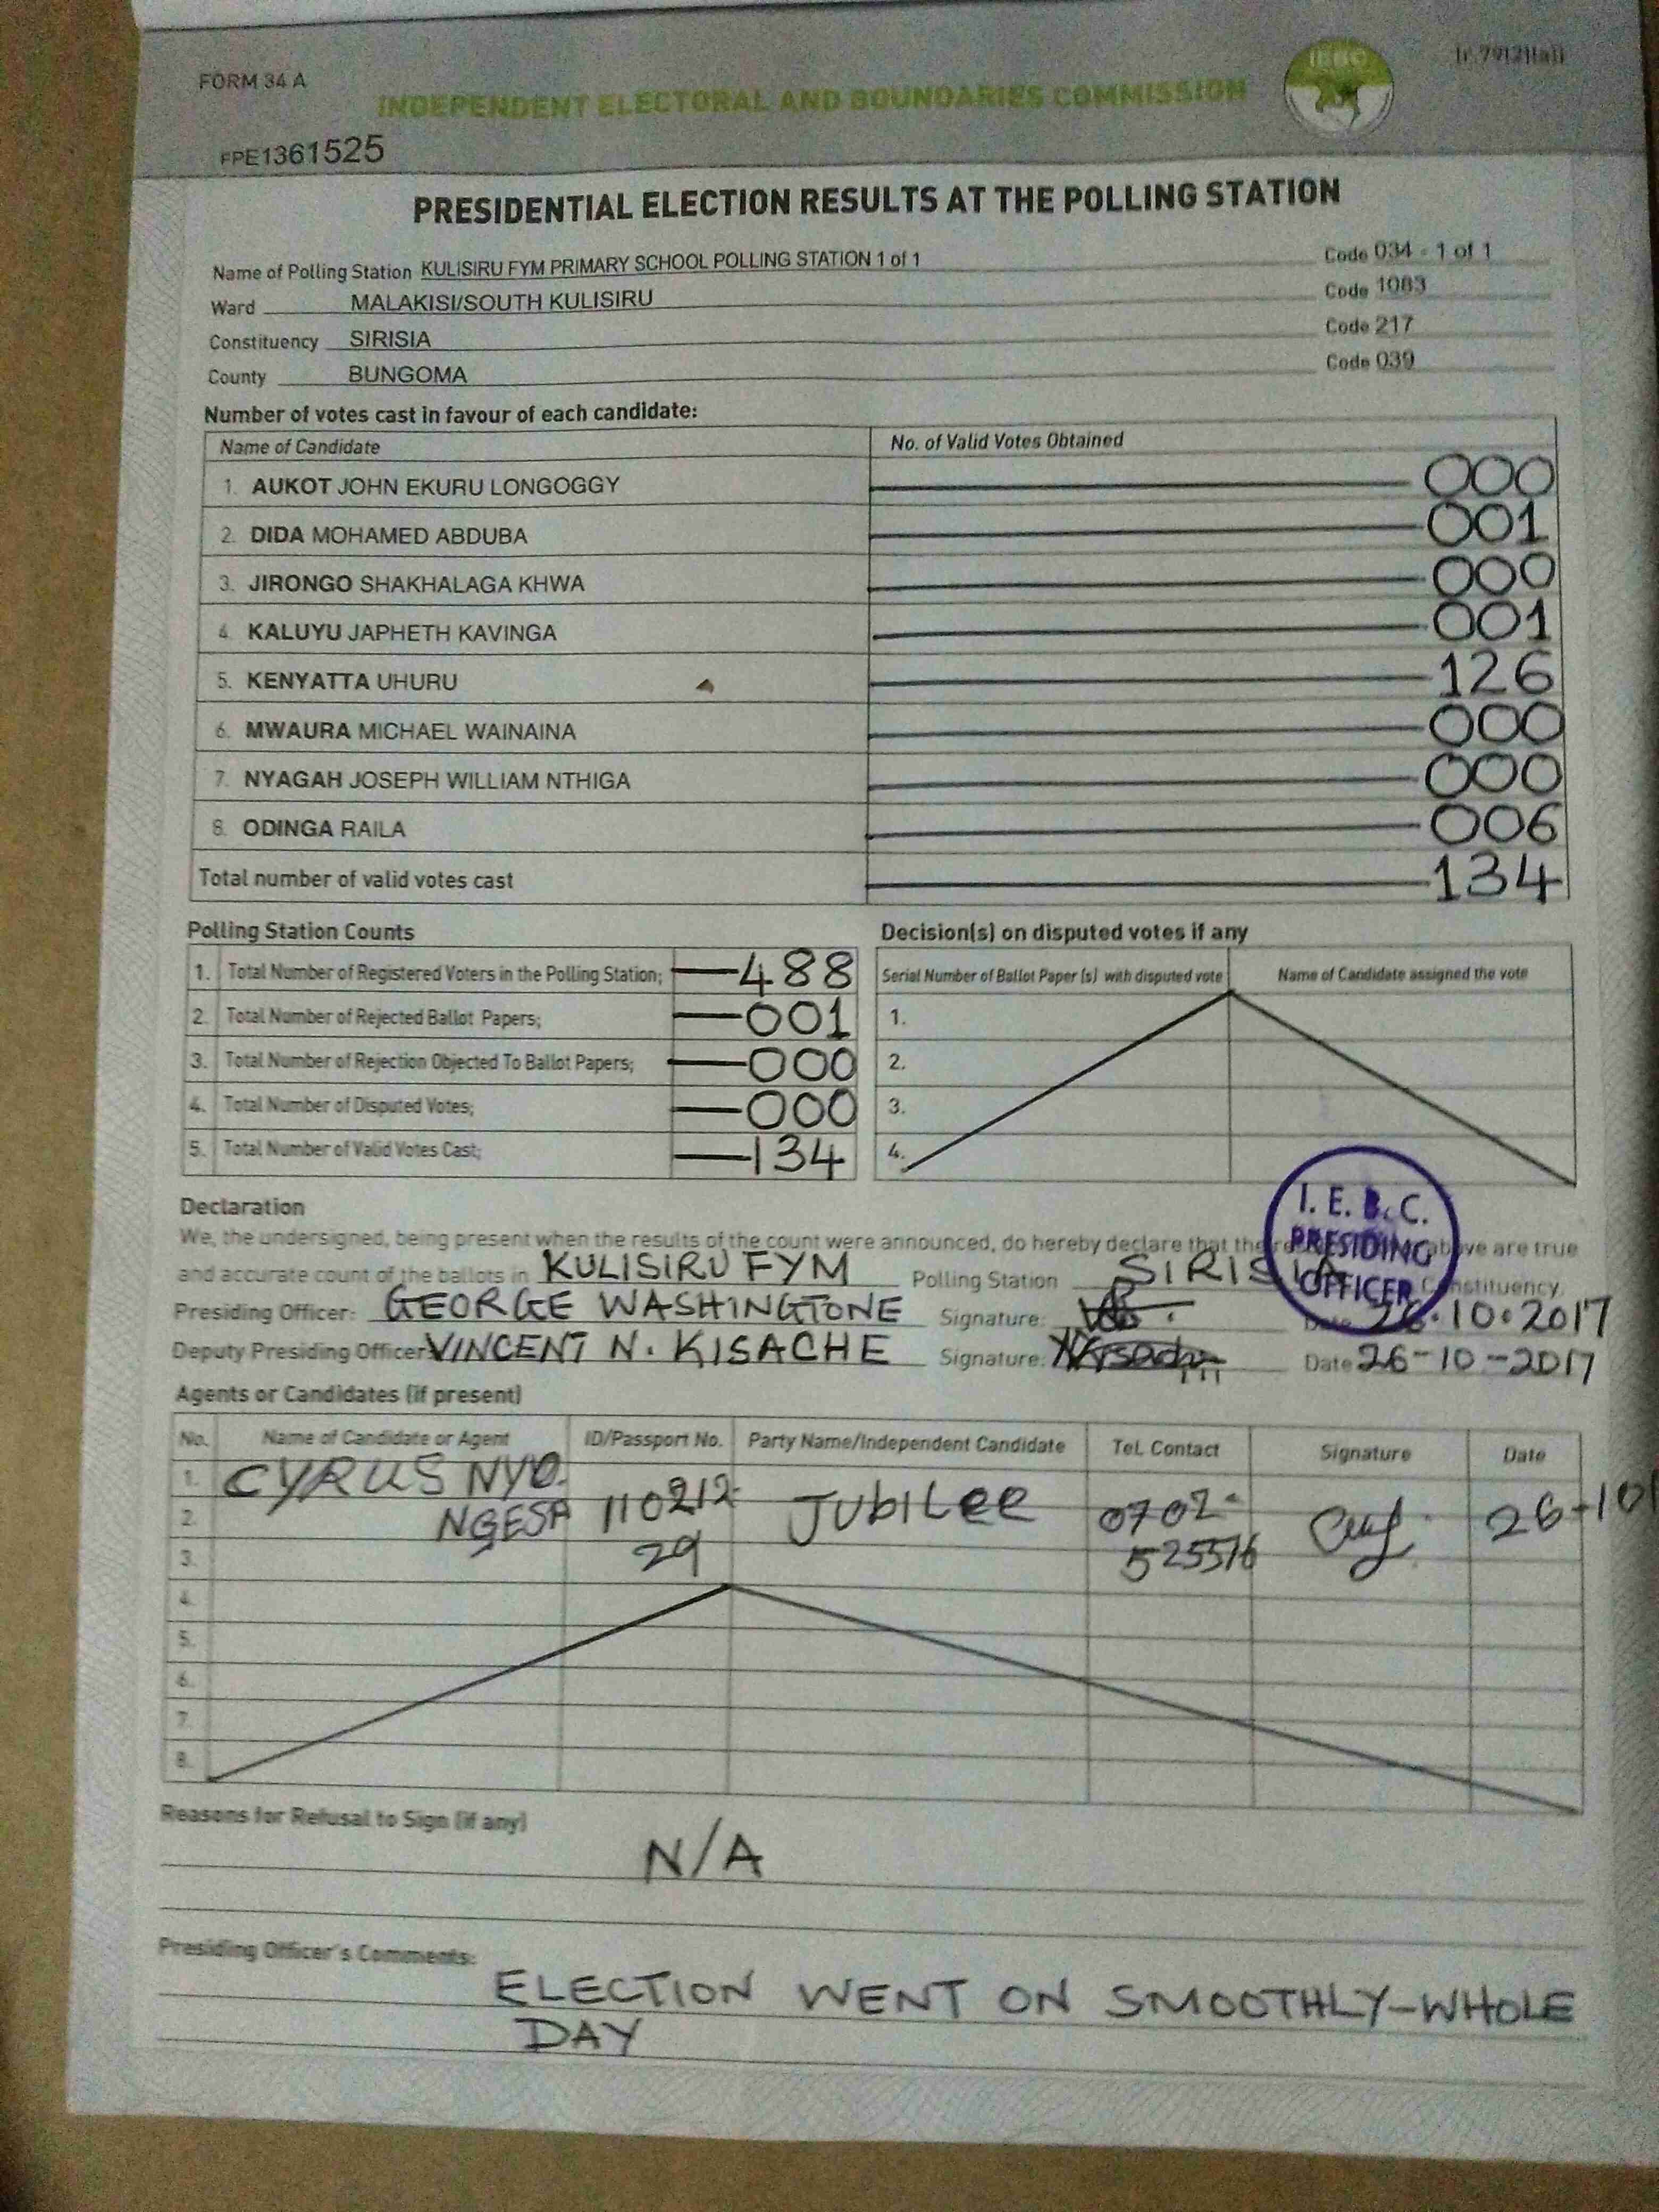 FORM 34 A
INDEPENDENT ELECTORAL AND BOUNDARIES COMMISSION
IEBC
FPE1361525
PRESIDENTIAL ELECTION RESULTS AT THE POLLING STATION
Name of Polling Station KULISIRU FYM PRIMARY SCHOOL POLLING STATION 1 of 1 Code 034 - 1 of 1
Ward MALAKISI/SOUTH KULISIRU Code 1083
Constituency SIRISIA Code 217
County BUNGOMA Code 039
Number of votes cast in favour of each candidate:
Name of Candidate No. of Valid Votes Obtained
1. AUKOT JOHN EKURU LONGOGGY 000
2. DIDA MOHAMED ABDUBA 001
3. JIRONGO SHAKHALAGA KHWA 000
4. KALUYU JAPHETH KAVINGA 001
5. KENYATTA UHURU 126
6. MWAURA MICHAEL WAINAINA 000
7. NYAGAH JOSEPH WILLIAM NTHIGA 000
8. ODINGA RAILA 006
Total number of valid votes cast 134
Polling Station Counts
1. Total Number of Registered Voters in the Polling Station; 488
2. Total Number of Rejected Ballot Papers; 001
3. Total Number of Rejection Objected To Ballot Papers; 000
4. Total Number of Disputed Votes; 000
5. Total Number of Valid Votes Cast; 134
Decision(s) on disputed votes if any
Serial Number of Ballot Paper (s) with disputed vote Name of Candidate assigned the vote
1.
2.
3.
4.
I. E. B. C.
PRESIDING
OFFICER
Declaration
We, the undersigned, being present when the results of the count were announced, do hereby declare that the above are true
and accurate count of the ballots in KULISIRU FYM Polling Station SIRISIA Constituency.
Presiding Officer: GEORGE WASHINGTONE Signature: Date 26.10.2017
Deputy Presiding Officer: VINCENT N. KISACHE Signature: Date 26-10-2017
Agents or Candidates (if present)
No. Name of Candidate or Agent ID/Passport No. Party Name/Independent Candidate Tel. Contact Signature Date
1. CYRUS NYO.
2. NGESA 110212 JUBILEE 0702- 26-10
3. 29 525516
4.
5.
6.
7.
8.
Reasons for Refusal to Sign (if any)
N/A
Presiding Officer's Comments:
ELECTION WENT ON SMOOTHLY-WHOLE
DAY